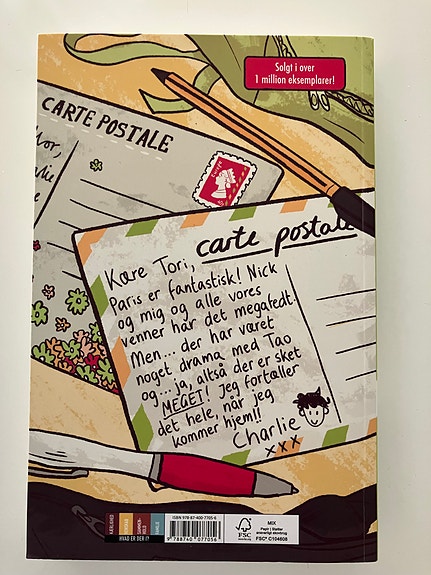 Solgt i over
1 million eksemplarer!
CARTE POSTALE
carte postale
Kære Tori,
Paris er fantastisk! Nick
og mig og alle vores
venner har det megafedt!
Men... der har været
noget drama med Tao
og... ja, altså der er sket
MEGET! Jeg fortæller
det hele, når jeg
kommer hjem!!
Charlie
xxx
KÆRLIGHED
HVAD ER DER I?
ISBN 978-87-400-7705-6
9788740077056
FSC
MIX
Papir | Støtter
ansvarligt skovbrug
FSC® C104608